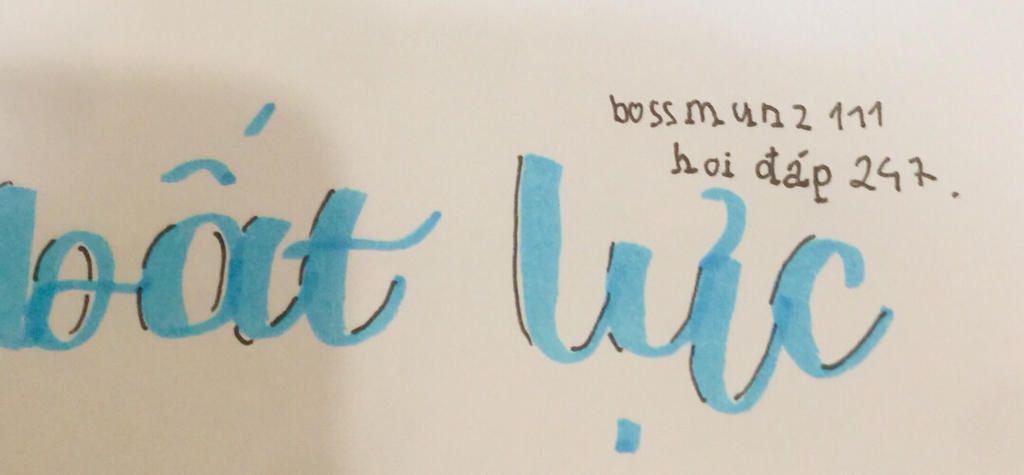 bossmunz 111
hoi đáp 247.
bất lực